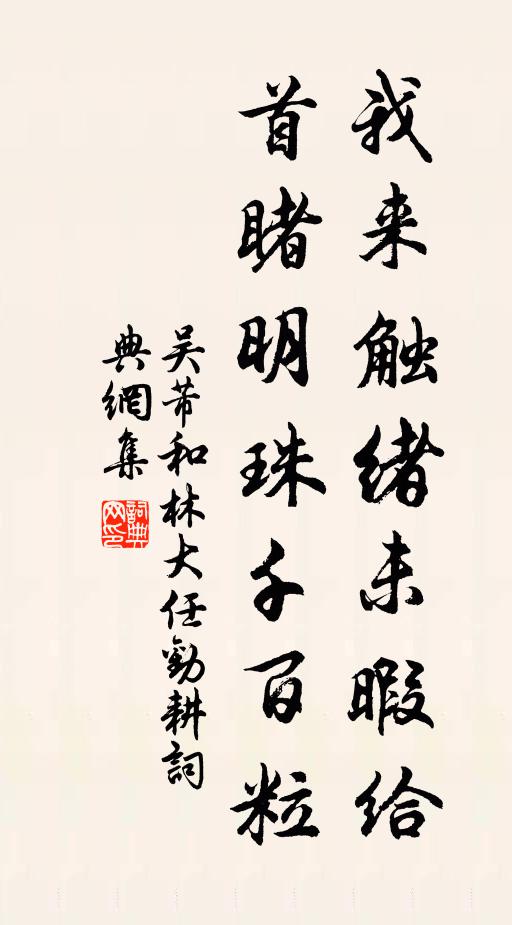 我来触绪未暇给
首睹明珠千百粒
吴芾和林大任劝耕詞
典網集
詞典网印